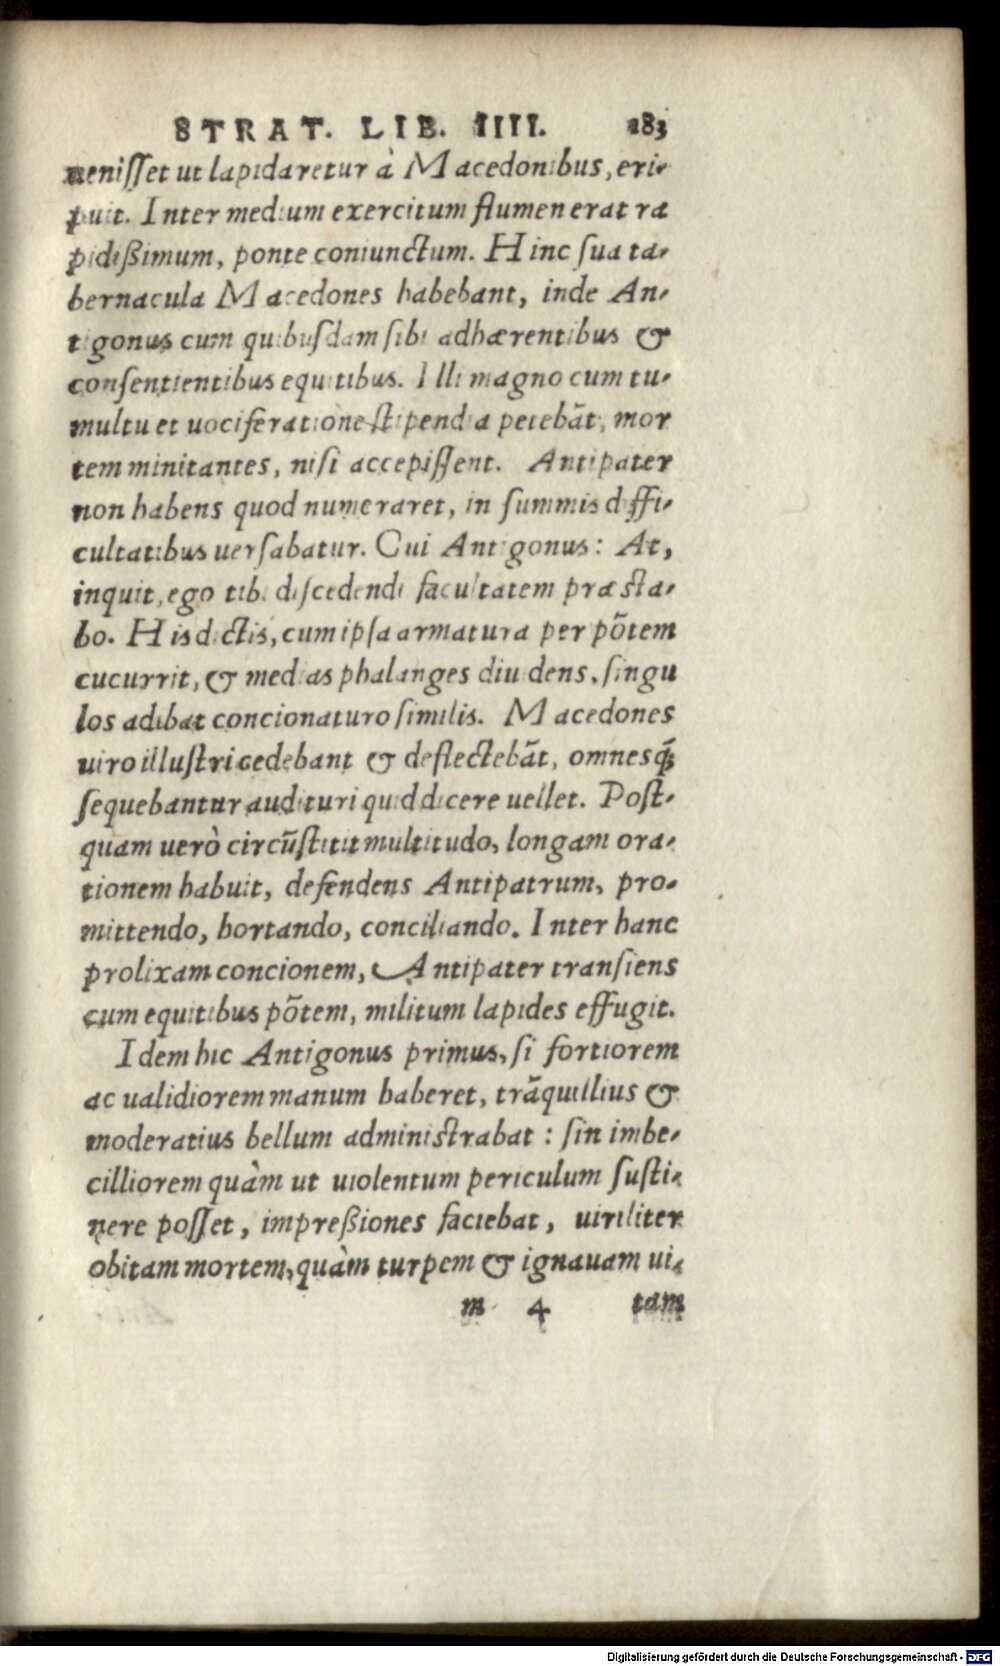 STRAT. LIB. IIII. 183
uenisset ut lapidaretur à Macedonibus, eri-
puit. Inter medium exercitum flumen erat ra
pidißimum, ponte coniunctum. Hinc sua ta-
bernacula Macedones habebant, inde An-
tigonus cum quibusdam sibi adhærentibus &
consentientibus equitibus. Illi magno cum tu-
multu et uociferatione stipendia petebāt, mor
tem minitantes, nisi accepissent. Antipater
non habens quod numeraret, in summis diffi-
cultatibus uersabatur. Cui Antigonus: At,
inquit, ego tibi discedendi facultatem præsta-
bo. His dictis, cum ipsa armatura per põtem
cucurrit, & medias phalanges diuidens, singu
los adibat concionaturo similis. Macedones
uiro illustri cedebant & deflectebāt, omnesq́;
sequebantur audituri quid dicere uellet. Post-
quam uerò circũstitit multitudo, longam ora-
tionem habuit, defendens Antipatrum, pro-
mittendo, hortando, conciliando. Inter hanc
prolixam concionem, Antipater transiens
cum equitibus põtem, militum lapides effugit.
Idem hic Antigonus primus, si fortiorem
ac ualidiorem manum haberet, trãquillius &
moderatius bellum administrabat: sin imbe-
cilliorem quàm ut uiolentum periculum susti-
nere posset, impreßiones faciebat, uiriliter
obitam mortem, quàm turpem & ignauam ui-
m 4 tam
Digitalisierung gefördert durch die Deutsche Forschungsgemeinschaft - DFG